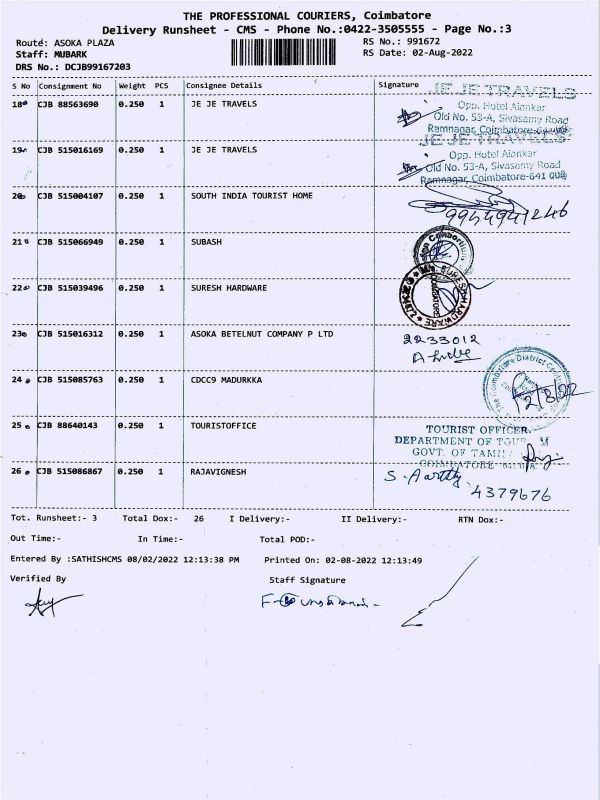 THE PROFESSIONAL COURIERS, Coimbatore
Delivery Runsheet - CMS - Phone No.:0422-3505555 - Page No.:3
Route: ASOKA PLAZA
RS No.: 991672
Staff: MUBARK
RS Date: 02-Aug-2022
DRS No.: DCJB99167203
S No Consignment No Weight PCS Consignee Details Signature
18 CJB 88563690 0.250 1 JE JE TRAVELS
JE JE TRAVELS
Opp. Hotel Alankar
Old No. 53-A, Sivasamy Road
Ramnagar, Coimbatore-
19 CJB 515016169 0.250 1 JE JE TRAVELS
JE JE TRAVELS
Opp. Hotel Alankar
Old No. 53-A, Sivasamy Road
Ramnagar, Coimbatore-641 009
20 CJB 515004107 0.250 1 SOUTH INDIA TOURIST HOME
9954941246
21 CJB 515066949 0.250 1 SUBASH
22 CJB 515039496 0.250 1 SURESH HARDWARE
23 CJB 515016312 0.250 1 ASOKA BETELNUT COMPANY P LTD
2233012
24 CJB 515085763 0.250 1 CDCC9 MADURKKA
The Coimbatore District Central
2/8/22
25 CJB 88640143 0.250 1 TOURISTOFFICE
TOURIST OFFICER.
DEPARTMENT OF
GOVT. OF TAMIL
COIMBATORE
26 CJB 515086867 0.250 1 RAJAVIGNESH
S. Aarthy
4379676
Tot. Runsheet:- 3 Total Dox:- 26 I Delivery:- II Delivery:- RTN Dox:-
Out Time:- In Time:- Total POD:-
Entered By :SATHISHCMS 08/02/2022 12:13:38 PM Printed On: 02-08-2022 12:13:49
Verified By Staff Signature